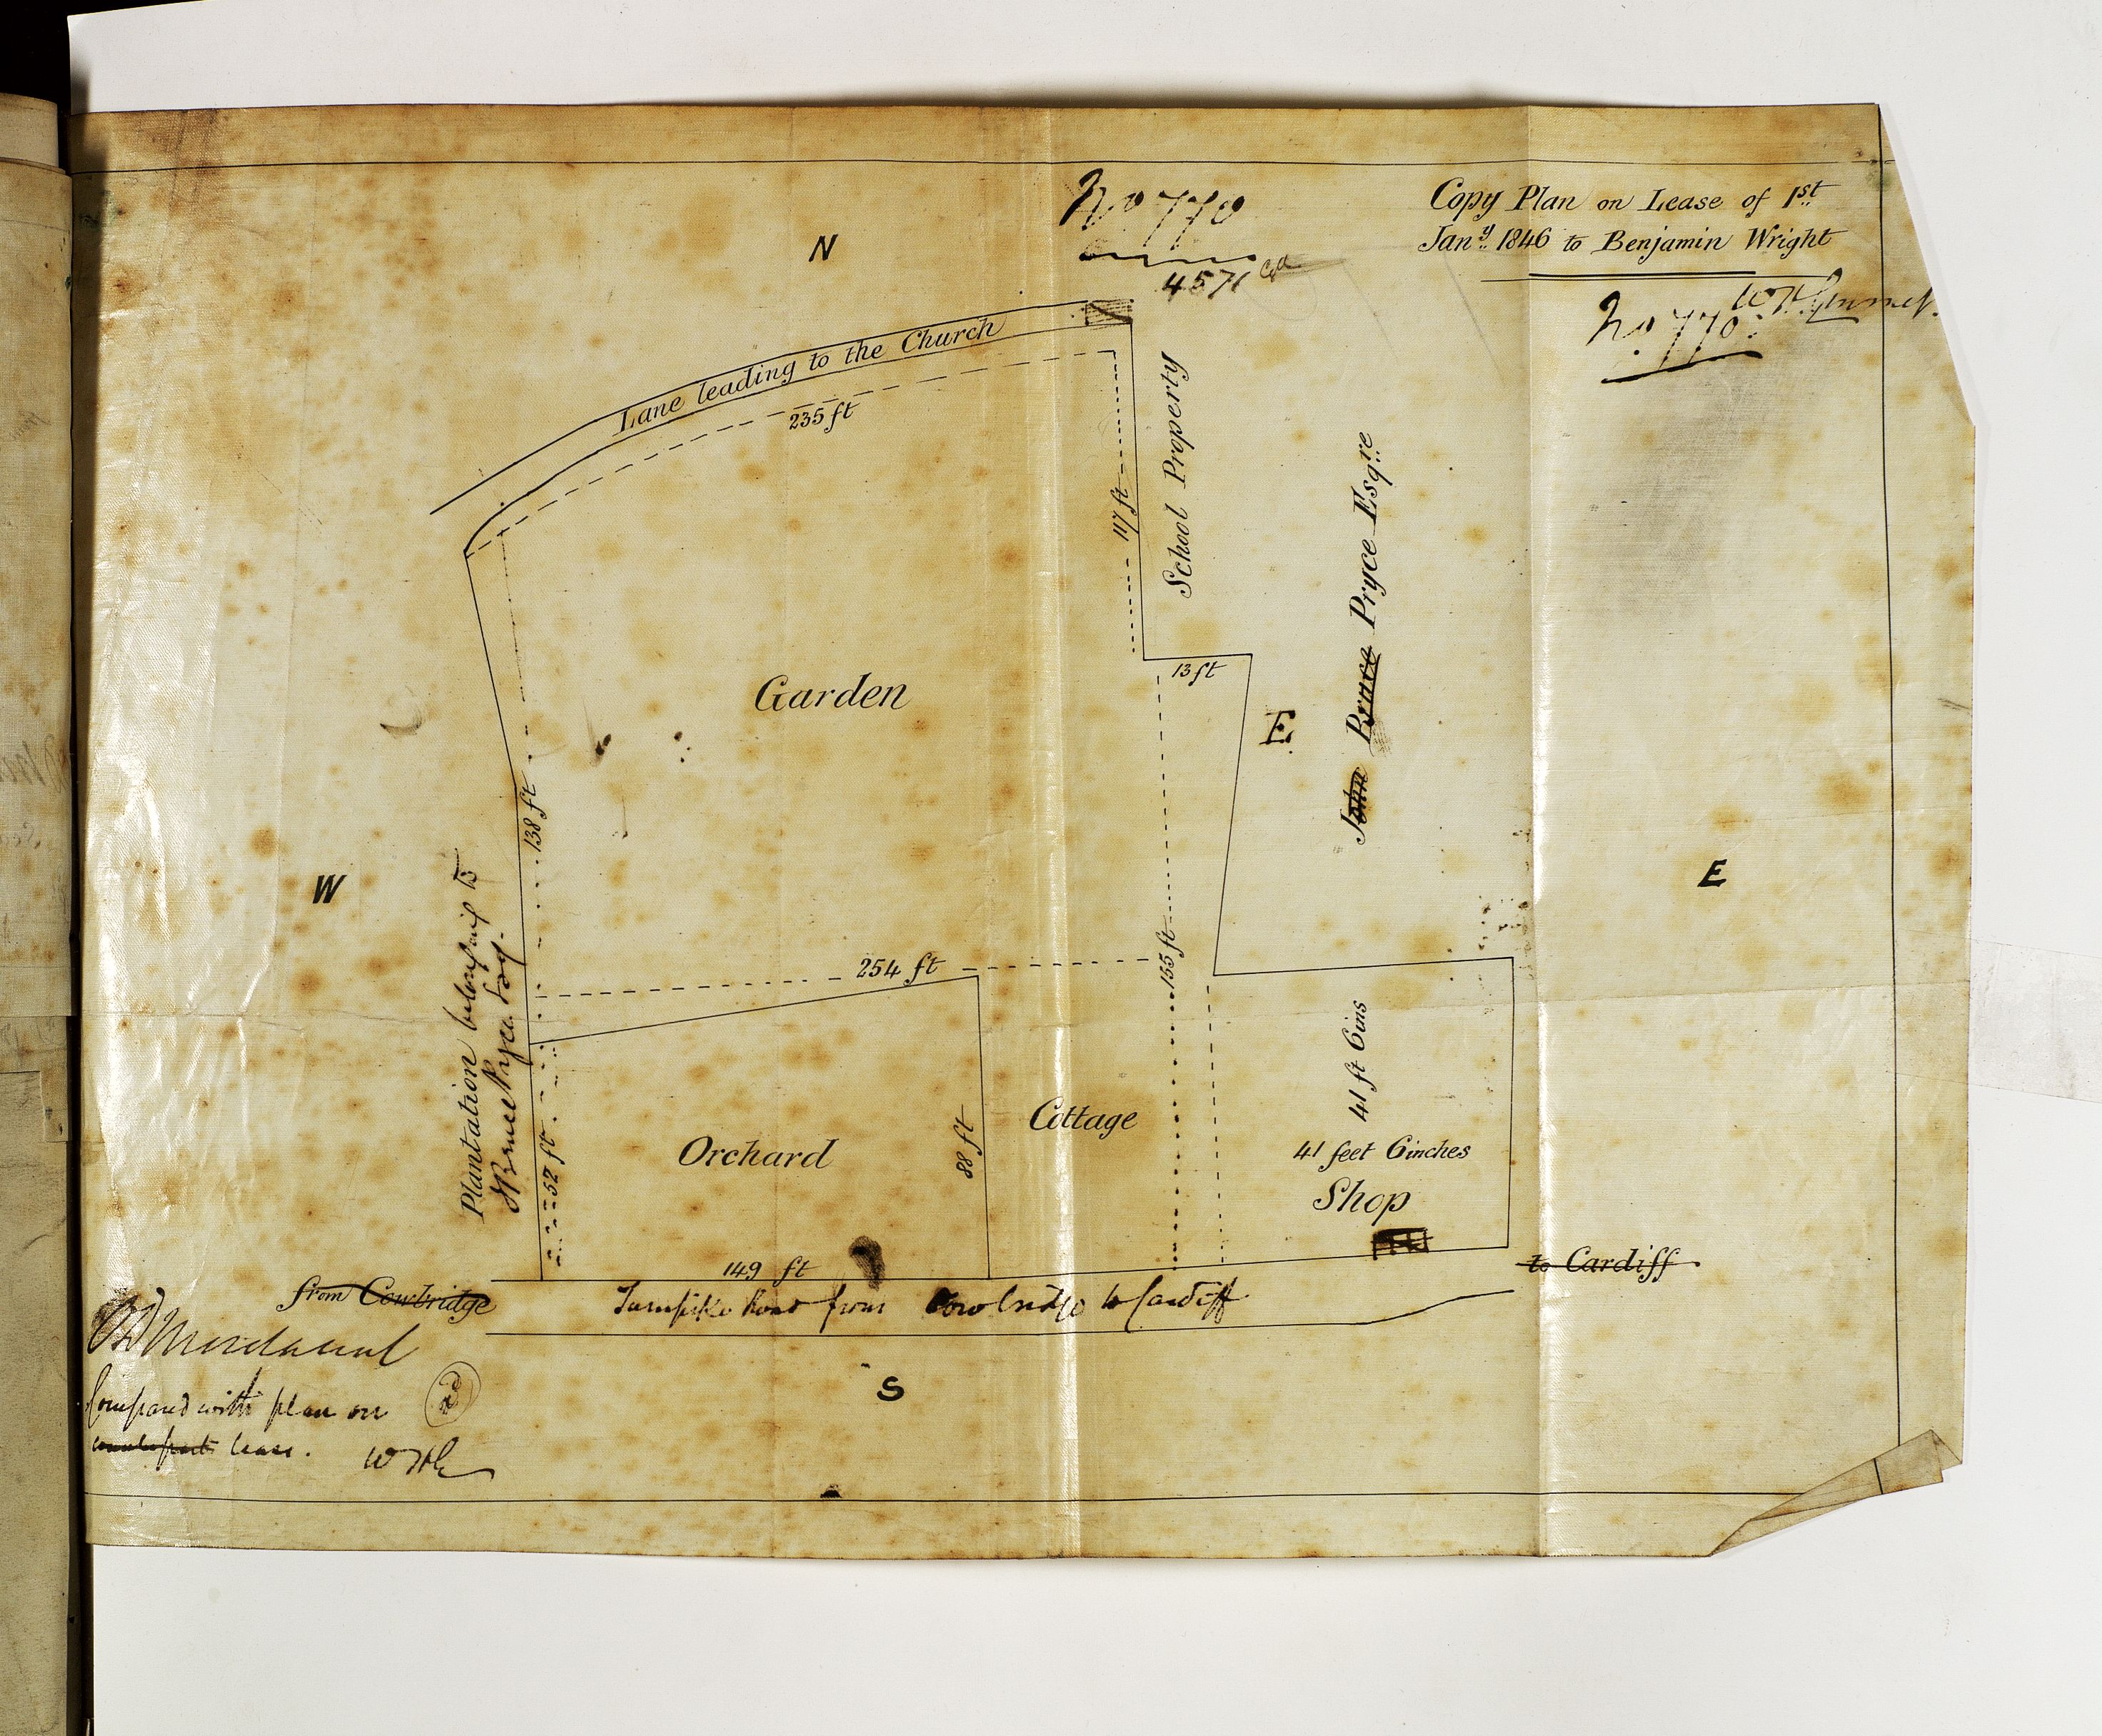 No 770
4571
Copy Plan on Lease of 1st
Jany 1846 to Benjamin Wright
No 770
N
Lane leading to the Church
235 ft
117 ft
School Property
13 ft
John Bruce Pryce Esqre
E
Garden
138 ft
W
E
Plantation belonging to
J Bruce Pryce Esq.
254 ft
155 ft
Orchard
52 ft
88 ft
149 ft
Cottage
41 ft 6ins
41 feet 6inches
Shop
from Cowbridge
Turnpike Road from Cowbridge to Cardiff
to Cardiff
S
Compared with plan on
counterpart lease.